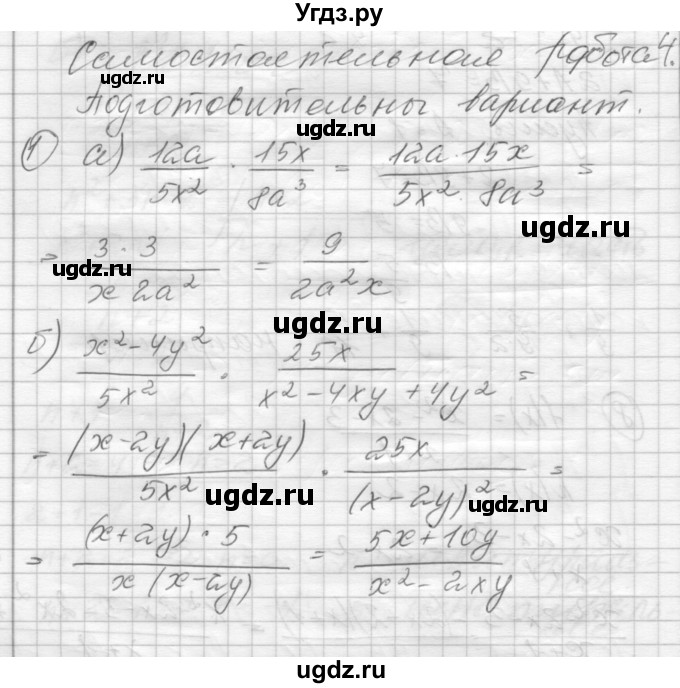 Угдз.ру
Самостоятельная работа 4.
ugdz.ru ugdz.ru
Подготовительны вариант.
ugdz.ru
① а) 12a/5x² · 15x/8a³ = 12a·15x/5x²·8a³ =
ugdz.ru
= 3·3/x 2a² = 9/2a²x
ugdz.ru
ugdz.ru
б) x²-4y²/5x² · 25x/x²-4xy+4y² =
ugdz.ru
= (x-2y)(x+2y)/5x² · 25x/(x-2y)² =
ugdz.ru
ugdz.ru
= (x+2y)·5/x(x-2y) = 5x+10y/x²-2xy
ugdz.ru
ugdz.ru